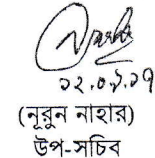 ১২.০৯.১৭
(নূরুন নাহার)
উপ-সচিব